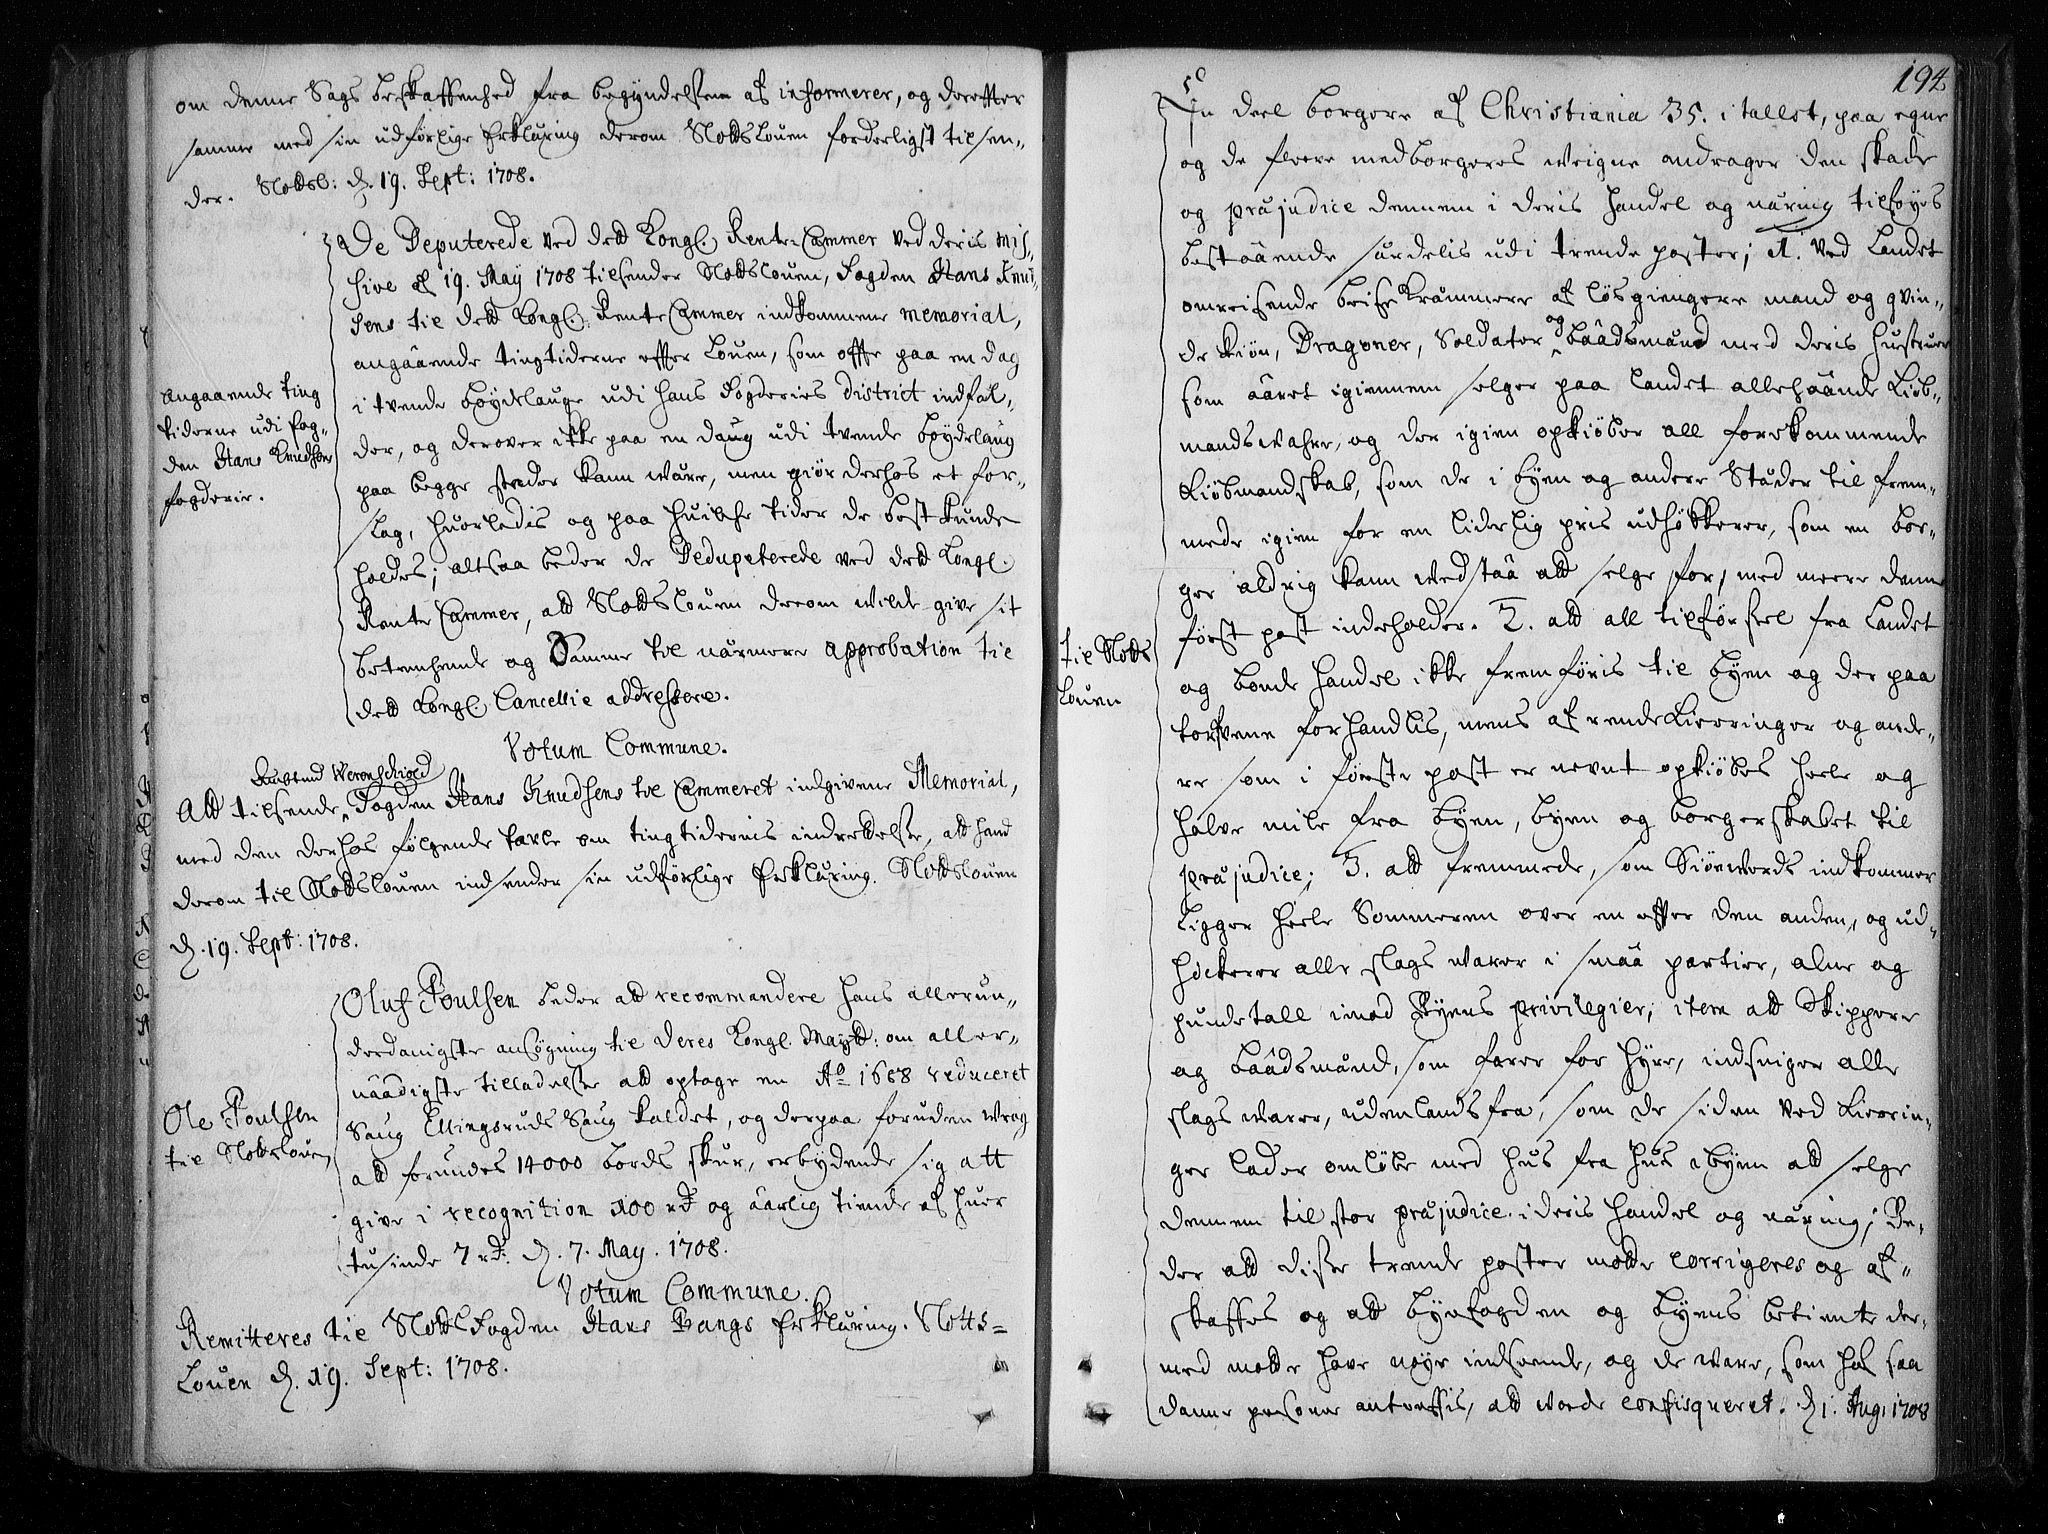 om denne Sags beskaffenhed fra begyndelsen at informerer, og derefter
samme med sin udførlige Erklæring derom Slotts Louen forderligst tilsen-
der. Slottsl: d. 19. Sept: 1708.
De Deputerede ved dett Kongl. Rente-Cammer ved deris mis-
sive af 19. May 1708 tilsender Slottslouen, Fogden Hans Knud-
sens til dett Kongl. Rente Cammer indkommene memorial,
angaaende tingtiderne efter Louen, som offte paa en dag
i tvende bøydelauge udi hans Fogderies District indfal-
der, og derover ikke paa en daug udi tvende bøydelaug
paa begge steder kann være, men giør derhos et for-
slag, huorledis og paa huilche tider de best kunde
holdes; altsaa beder de Dedupeterede ved dett Kongl.
Rente Cammer, att Slotts Louen derom wilde give sit
betenchende og Samme til nærmere approbation til
dett Kongl. Cancellie addressere.
Angaaende ting
tiderne udi fog-
den Hans Knudsens
fogderie.
Votum Commune.
Auvtmd Werenschiold
Att tilsende Fogden Hans Knudsens til Cammeret indgivene Memorial,
med den derhos følgende tavle om tingtidernis indrettelse, att hand
derom til Slottslouen indsender sin udførlige Erklæring. Slottslouen
d. 19. Sept: 1708.
Oluf Poulsen beder att recommandere hans allerun-
derdanigste ansøgning til Deres Kongl. Maytt: om aller-
naadigste tilladelse att optage en Ao 1688 reduceret
Saug Ellingsruds Saug kaldet, og derpaa foruden wrag
att forundes 14000 bords skur, erbydende sig att
give i recognition 100 rd og aarlig tiende af huer
tusinde 7 rd. d. 7. May. 1708.
Ole Poulsen
til Slottslouen
Votum Commune.
Remitteres til Slotts Fogden Hans Bangs Erklæring. Slotts-
Louen d. 19. Sept: 1708.
194
En deel borgere af Christiania 35. i tallet, paa egne
og de fleere medborgeres weigne andrager den skade
og præjudice dennem i deris handel og næring tilføyes
bestaaende særdelis udi trende poster; 1. Ved Landet
omreisende beise Kræmmere af løsgiengere mand og qvin-
de kiøn, Dragoner, Soldater og baadsmænd med deris hustruer
som aaret igiennem selger paa landet allehaande Kiøb-
mandswahre, og der igien opkiøber all forekommende
Kiøbmandskab, som de i byen og andere Stæder til frem-
mede igien for en liderlig pris udhøkkerer, som en bor-
ger aldrig kann wedstaa att selge for, med meere denne
først post indeholder. 2. att all tilførsel fra Landet
og bonde handel ikke fremføris til byen og der paa
torfvene forhandlis, mens af rende Kierringer og ande-
re som i første post er nevnt opkiøbes heele og
halve mile fra byen, byen og borgerskabet til
præjudice; 3. att fremmede, som Siøewerds indkommer
Ligger heele Sommeren over en effter den anden, og ud-
høckerer alle slags warer i smaa partier, alne og
pundetall imod Byens privilegier; item att Skippere
og baadsmænd, som farer for hyre, indsniger alle
slags warer, udenlandsfra, som de siden ved Kierrin-
ger lader omløbe med hus fra hus i byen att selge
dennem til stor præjudice i deris handel og næring; Be-
der att disse trende poster motte corrigeres og af-
skaffes og att byefogden og byens betiente der-
med motte have nøye indseende, og de ware, som hos saa
danne personer antreffis, att worde confisqueret. d 1. Aug. 1708
til Slotts
Louen